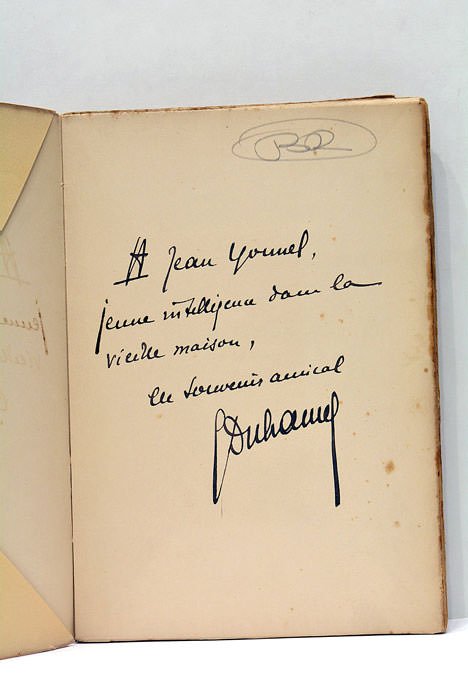 BR
A Jean Yonnel,
jeune intelligence dans la
vieille maison,
en souvenir amical
GDuhamel